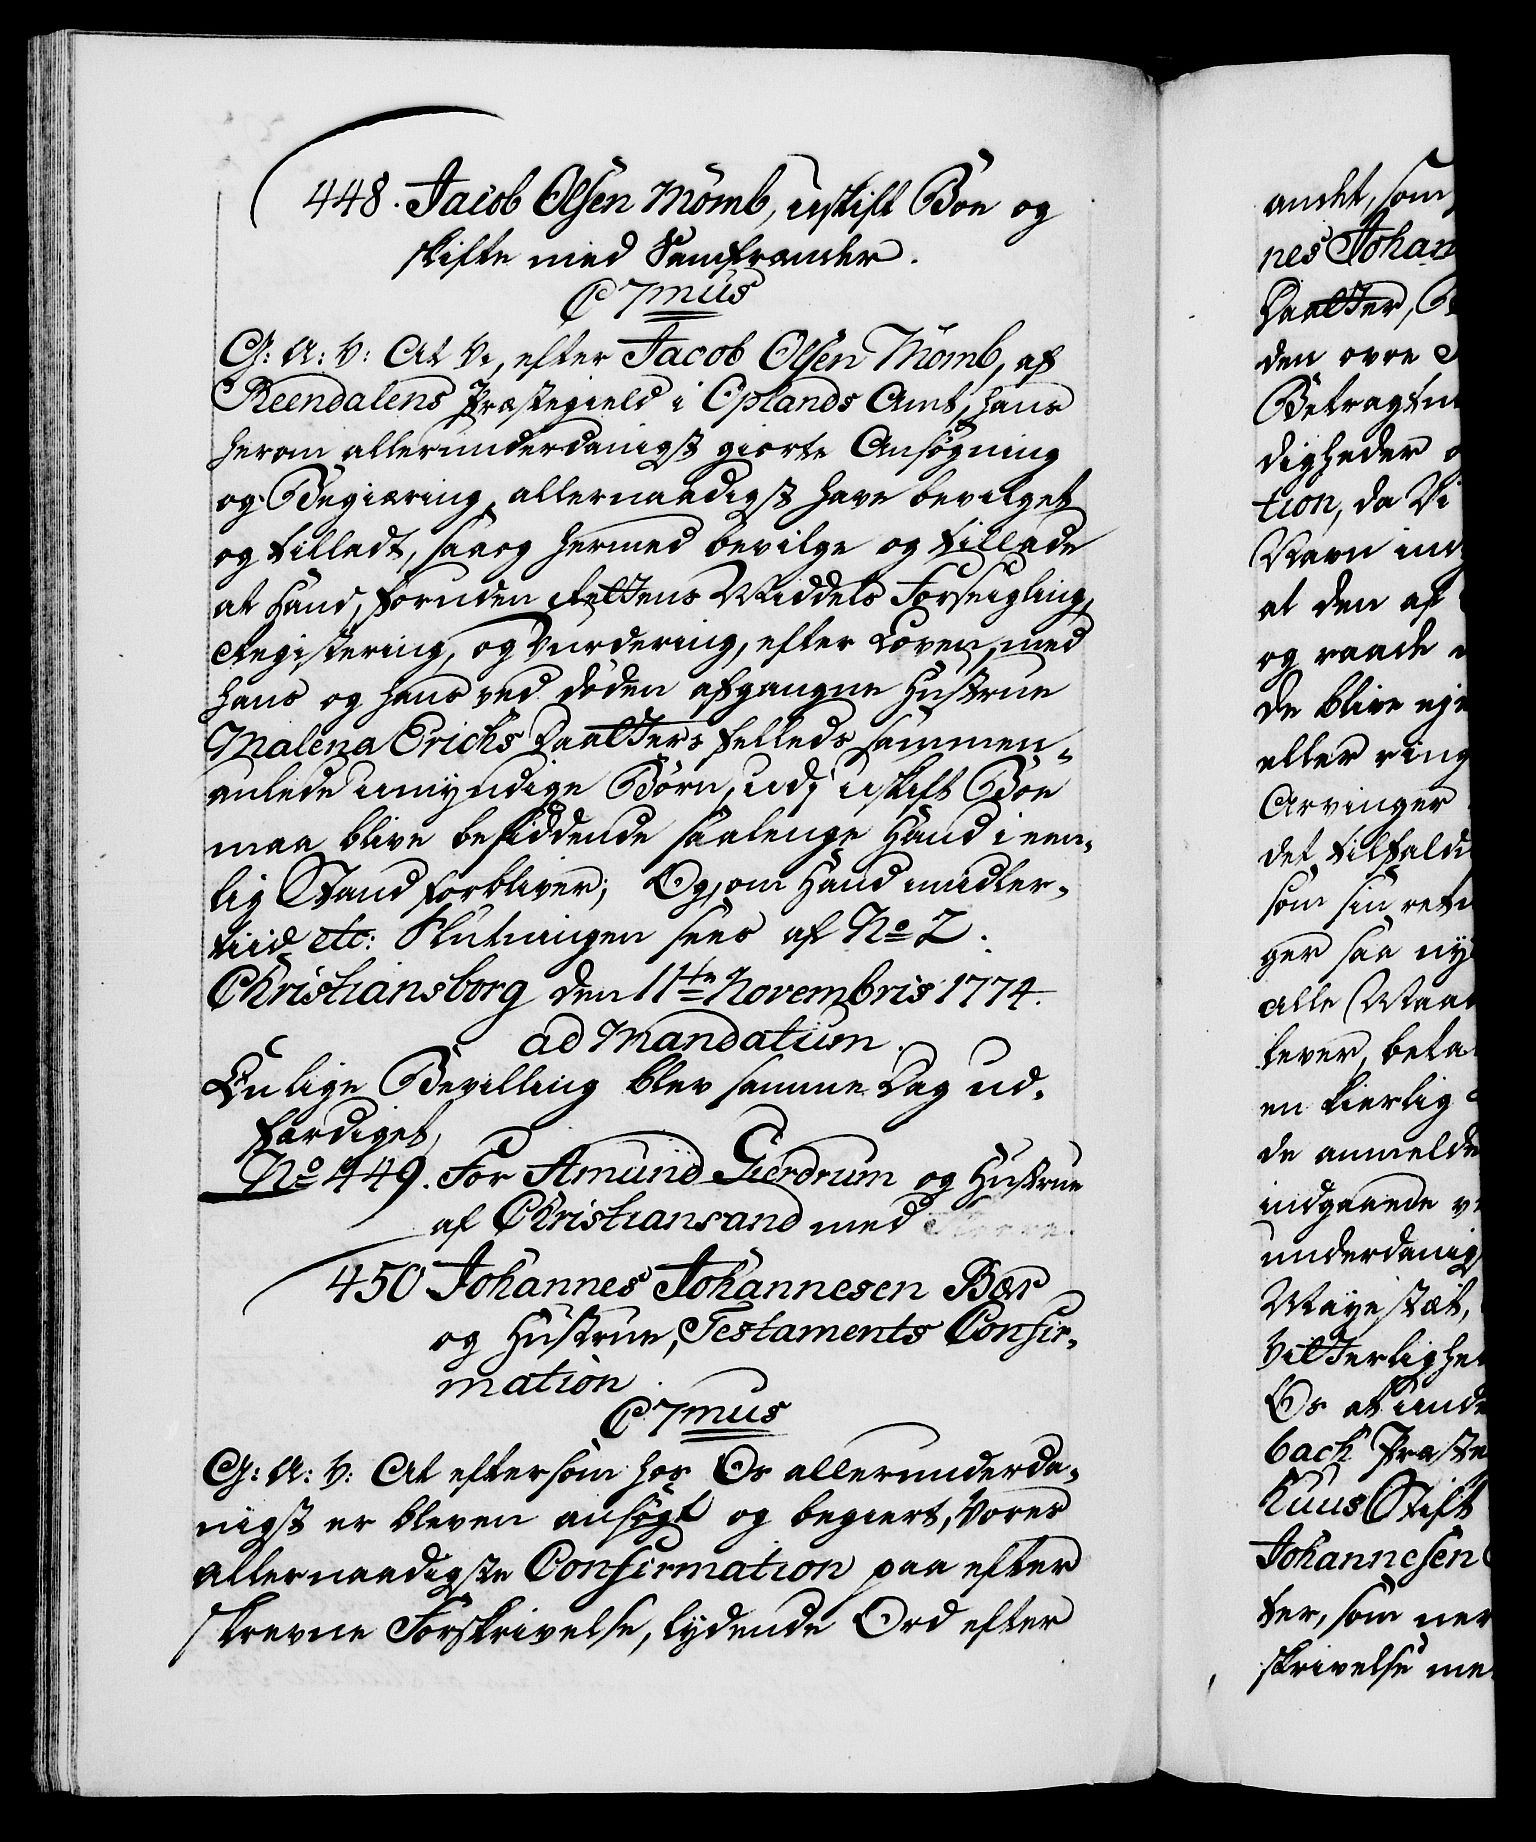 448. Jacob Olsen Mömb, uskift Boe og
skifte med Samfrænder.
C 7mus
G: A: V: At Vi, efter Jacob Olsen Mömb, af
Reendalens Præstegield i Oplands Amt, hans
herom allerunderdanigst giorte Ansøgning
og Begiæring, allernaadigst have bevilget
og tilladt, saasom Vi og hermed bevilge og tillade
at Hand, foruden Rettens Middels Forseigling,
Registering, og Vurdering, efter Loven, med
hans og hans ved døden afgangne Hustrue
Malena Erichs Daatters felleds sammen-
avlede umyndige Børn, udj uskift Boe
maa blive besiddende saalenge Hand i een-
lig Stand forbliver; Og, om Hand imidler-
tiid etc: Slutningen sees af No 2.
Christiansborg den 11te Novembris 1774.
ad Mandatum.
En lige Bevilling blev samme Dag ud-
færdiget,
No 449. For Amund Gierdrum og Hustrue
af Christiansand med
450 Johannes Johannesen Bær
og Hustrue, Testaments Confir-
mation.
C 7mus
G: A: V: At eftersom hos Os allerunderda-
nigst er bleven ansøgt og begiert, Vores
allernaadigste Confirmation paa efter
skrevne Forskrivelse, lydende Ord efter
andet, som
nes Johan
Daatter, B
den ovre
Betragtni
digheder o
tion, da Vi
Navn ind
at den af
og raade
de blive eje
eller ring
Arvinger
det tilfalde
som sin rette
ger saa ny
alle Maa
lever, beta
en kierlig
de anmelde
indgaaede
underdanig
Mayestæt,
Vitterlighe
Os at unde
bach Præste
huus Stift
Johannesen
ter, som ner
skrivelse me